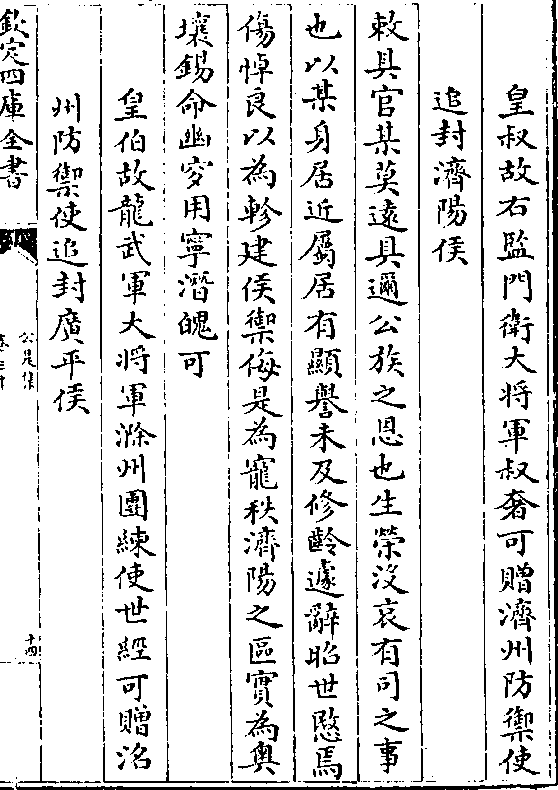 皇叔故右監門衛大將軍叔奢可贈濟州防禦使
追封濟陽侯
敕具官某莫遠具邇公族之恩也生榮没哀有司之事
也以某身居近屬居有顯譽未及修齡遽辭昭世愍焉
傷悼良以為軫建侯禦侮是為寵秩濟陽之區實為奥
壤錫命幽穸用寧潛魄可
皇伯故龍武軍大將軍滁州團練使世經可贈洺
州防禦使追封廣平侯
欽定四庫全書
公是集
十四